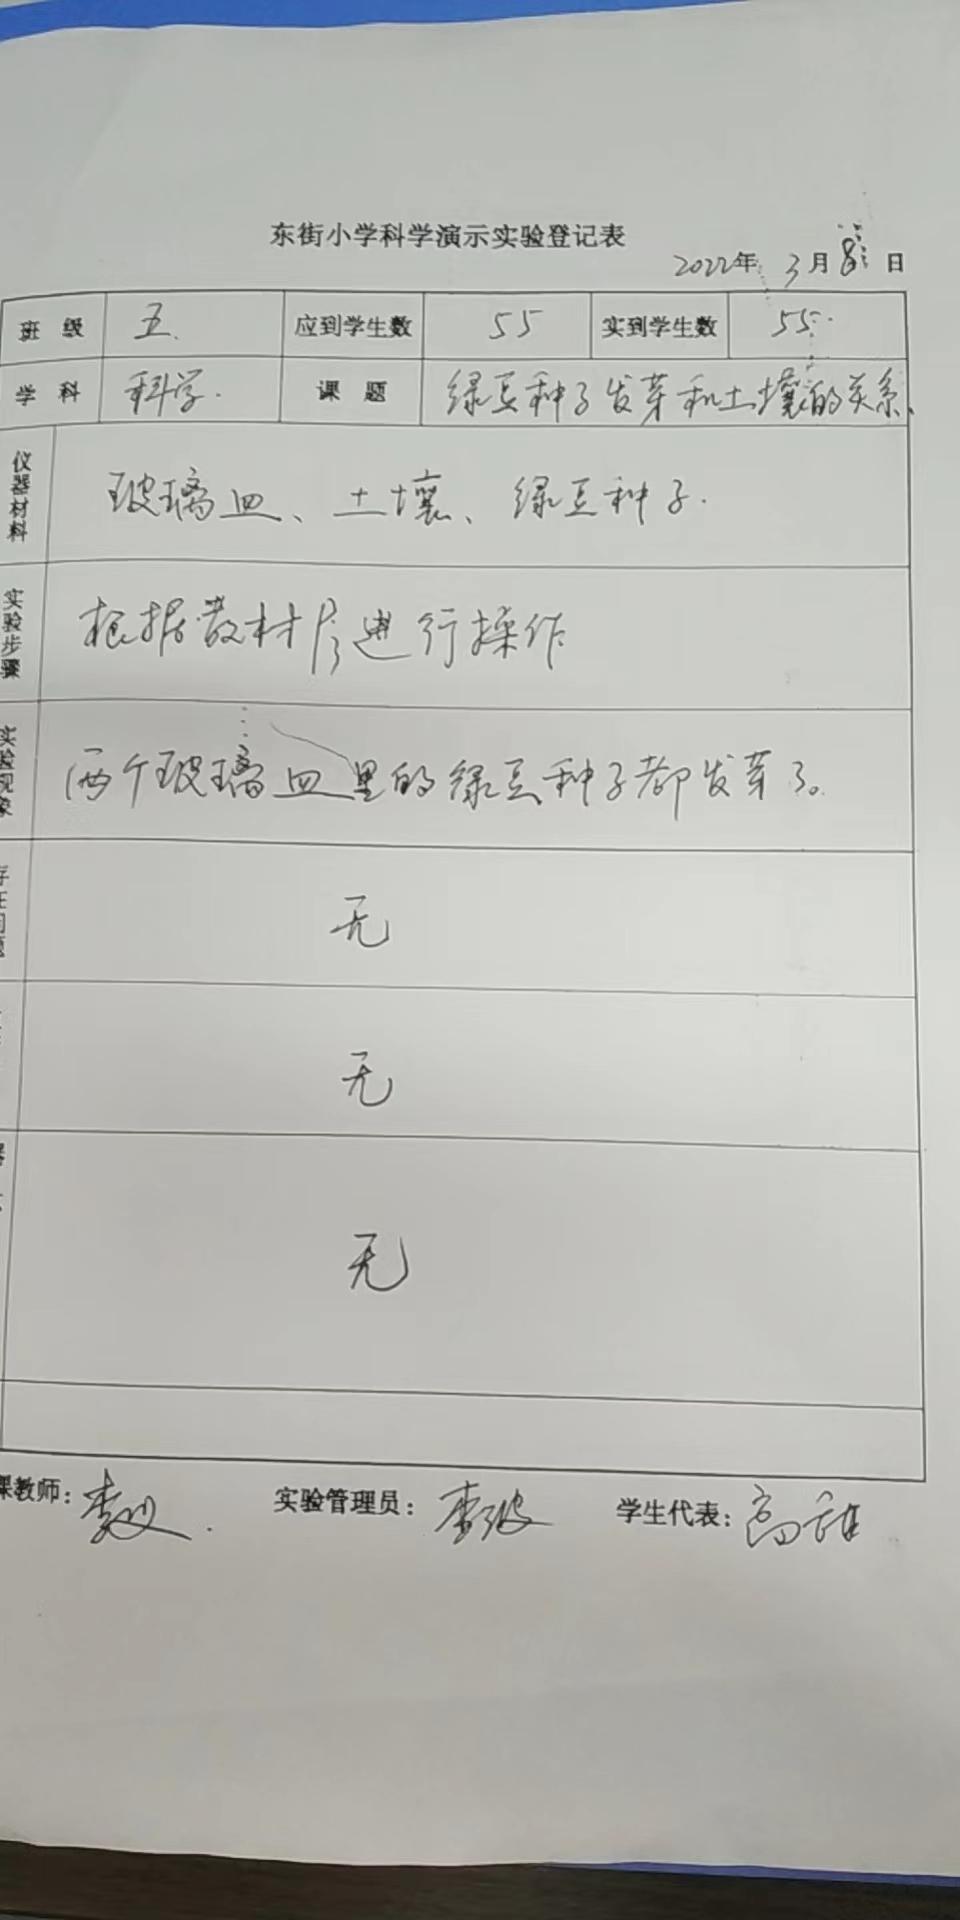 东街小学科学演示实验登记表
2022年3月8日
班级 五. 应到学生数 55 实到学生数 55.
学科 科学. 课题 绿豆种子发芽和土壤的关系.
仪器材料 玻璃皿、土壤、绿豆种子.
实验步骤 根据教材P3进行操作
实验现象 两个玻璃皿里的绿豆种子都发芽了。
存在问题 无
无
无
课教师: 实验管理员: 李波 学生代表: 高甜